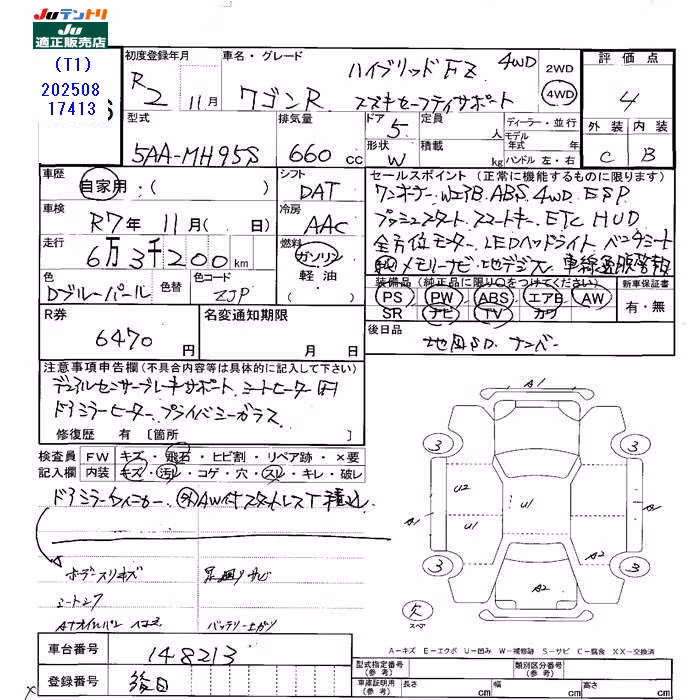 JUテントリ
JU
適正販売店
(T1)
202508
17413
初度登録年月
R2 11月
車名・グレード
ハイブリッドFZ 4WD
ワゴンR スズキセーフティサポート
2WD
4WD
評価点
4
外装 内装
C B
型式
5AA-MH95S
排気量
660cc
ドア 5
形状 W
定員 人
積載 kg
ディーラー・並行
モデル
年式 年
ハンドル 左・右
車歴
自家用・( )
シフト
DAT
車検
R7年 11月( 日)
冷房
AAC
走行
6万3千200km
燃料
ガソリン
軽油
( )
色
Dブルーパール
色替
色コード
ZJP
セールスポイント(正常に機能するものに限ります)
ワンオーナー WエアB ABS 4WD ESP
プッシュスタート スマートキー ETC HUD
全方位モニター LEDヘッドライト ベンチシート
純 メモリーナビ 地デジ 車線逸脱警報
装備品(純正品に限り○をつけてください)
新車保証書
PS PW ABS エアB AW
SR ナビ TV カワ
有・無
R券
6470円
名変通知期限
月 日
後日品
地図SD ナンバー
注意事項申告欄(不具合内容等は具体的に記入して下さい)
デュアルセンサーブレーキサポート シートヒーター
ドアミラーヒーター プライバシーガラス
修復歴 有 [箇所 ]
検査員 FW キズ・飛石・ヒビ割・リペア跡・×要
記入欄 内装 キズ・汚レ・コゲ・穴・スレ・キレ・破レ
ドアミラーウィンカー 外AW付スタッドレスT積込
ボデースリキズ 足廻りサビ
シートシワ
バッテリー上がり
A1
3 3
A1 U2 U1 U1 A2 A1
3 3
A2
欠
スペア
A-キズ E-エクボ U-凹み W-補修跡 S-サビ C-腐食 XX-交換済
車台番号
148213
登録番号
後日
型式指定番号
(参考)
類別区分番号
(参考)
車庫証明用
(参考)
長さ cm 幅 cm 高さ cm